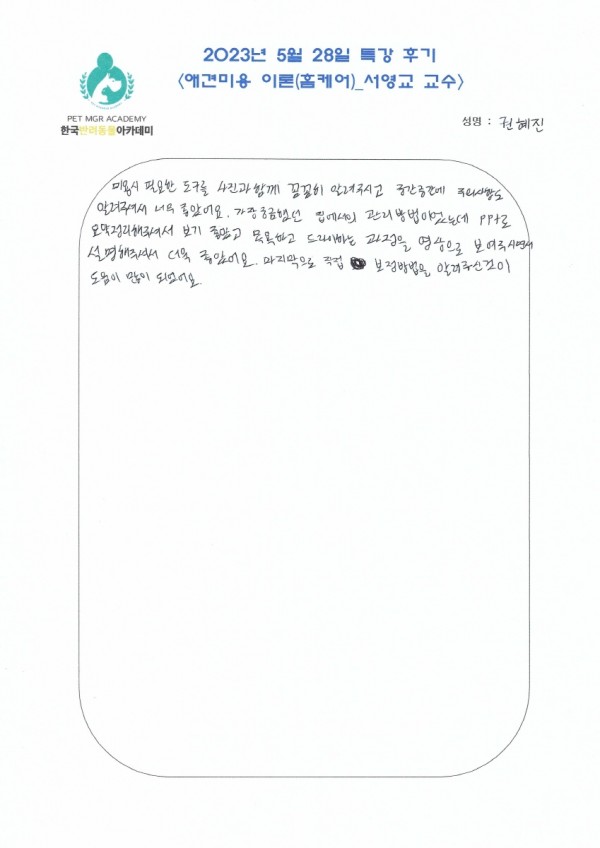 2023년 5월 28일 특강 후기
<애견미용 이론(홈케어)_서영교 교수>
PET MGR ACADEMY
한국반려동물아카데미
성명 : 권혜진
미용시 필요한 도구를 사진과 함께 꼼꼼히 알려주시고 중간중간에 주의사항도
알려주셔서 너무 좋았어요. 가장 궁금했던 집에서의 관리방법이었는데 PPT로
요약정리해주셔서 보기 좋았고 목욕하고 드라이하는 과정을 영상으로 보여주시면서
설명해주셔서 더욱 좋았어요. 마지막으로 직접 보정방법을 알려주신것이
도움이 많이 되었어요.